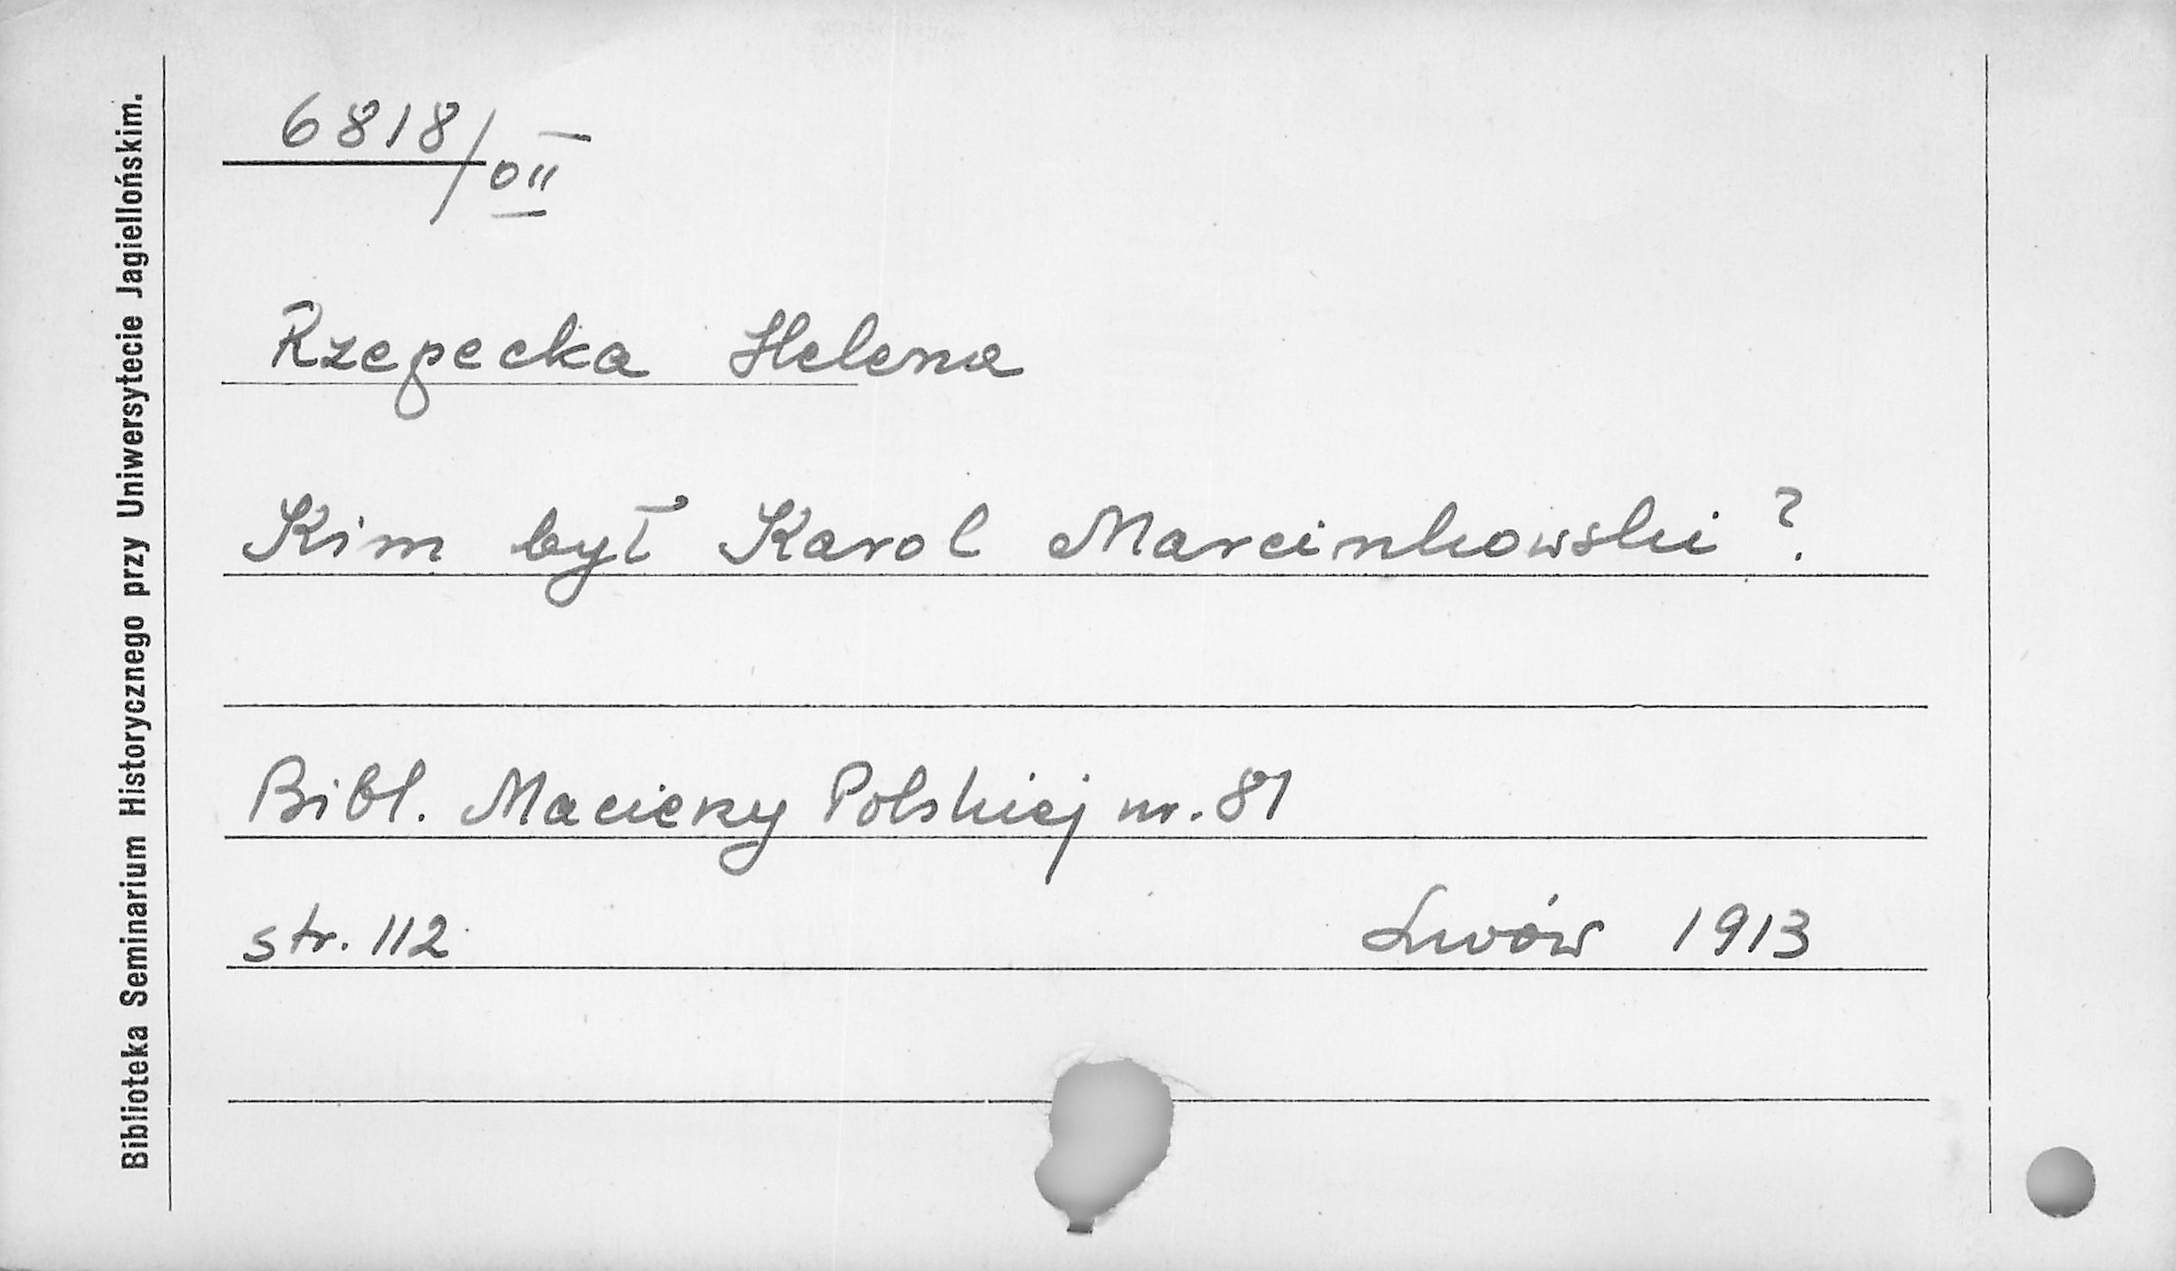 6818/OII
Rzepecka Helena
Kim był Karol Marcinkowski?
Bibl. Macierzy Polskiej nr. 81
str. 112 Lwów 1913
Biblioteka Seminarium Historycznego przy Uniwersytecie Jagiellońskim.